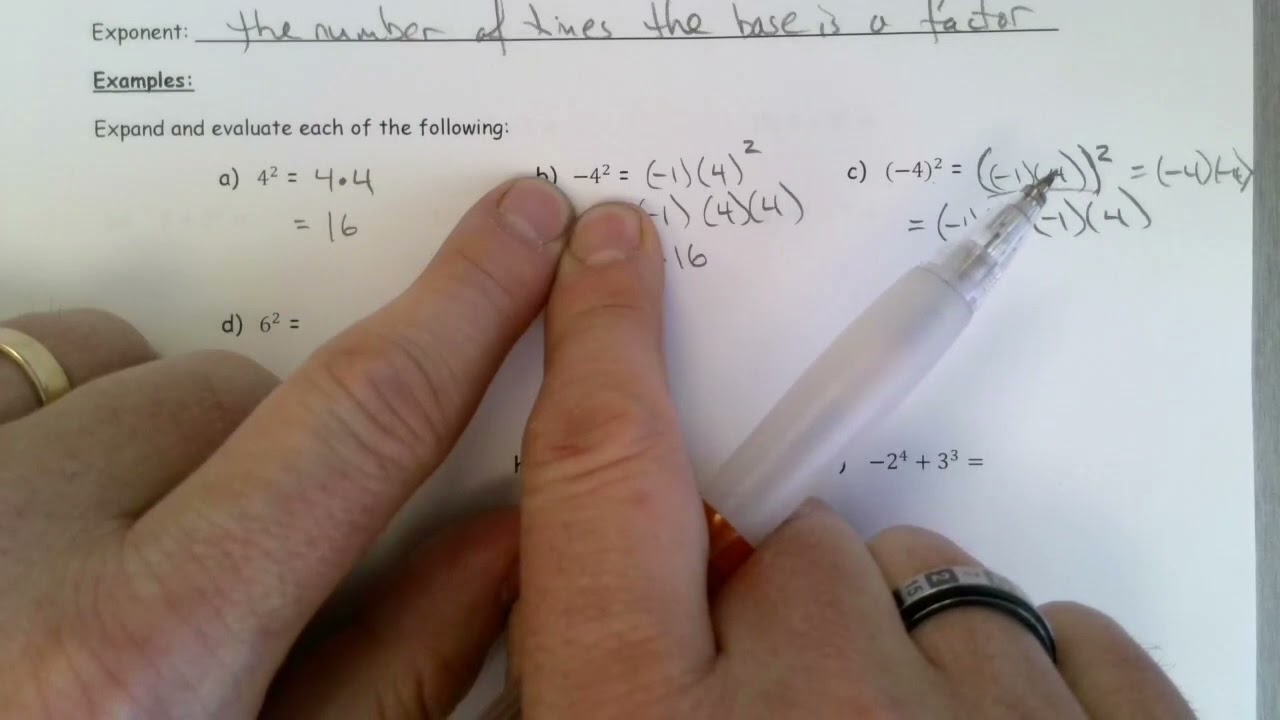 Exponent: the number of times the base is a factor
Examples:
Expand and evaluate each of the following:
a) 4² = 4•4
= 16
b) −4² = (-1)(4)²
(-1) (4)(4)
16
c) (−4)² = ((-1)(4))² = (-4)(-4)
= (-1) (-1)(4)
d) 6² =
−2⁴ + 3³ =